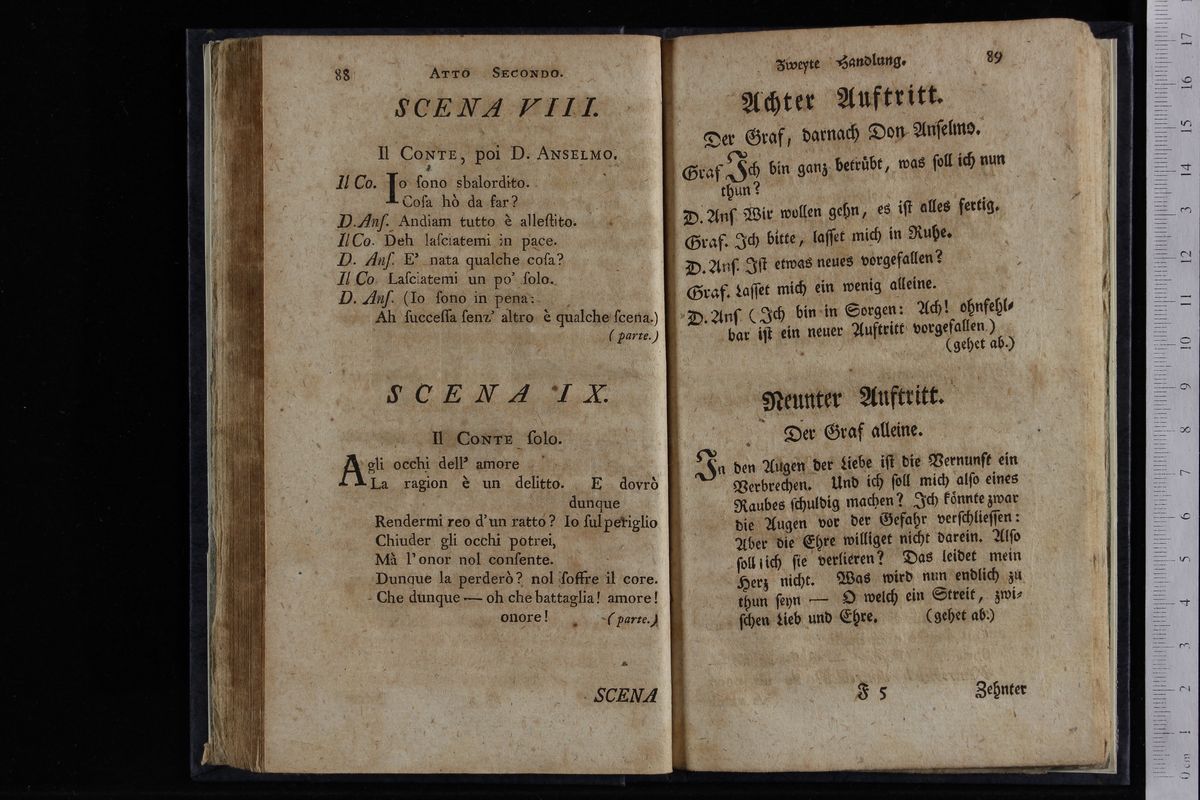 88 ATTO SECONDO.
SCENA VIII.
Il CONTE, poi D. ANSELMO.
Il Co. Io ſono sbalordito.
Coſa hò da far?
D. Anſ. Andiam tutto è alleſtito.
Il Co. Deh laſciatemi in pace.
D. Anſ. E' nata qualche coſa?
Il Co Laſciatemi un po' ſolo.
D. Anſ. (Io ſono in pena:
Ah ſucceſſa ſenz' altro è qualche ſcena.)
(parte.)
SCENA IX.
Il CONTE ſolo.
Agli occhi dell' amore
La ragion è un delitto. E dovrò
dunque
Rendermi reo d'un ratto? Io ſul periglio
Chiuder gli occhi potrei,
Mà l'onor nol conſente.
Dunque la perderò? nol ſoffre il core.
Che dunque — oh che battaglia! amore!
onore! (parte.)
SCENA
Zweyte Handlung. 89
Achter Auftritt.
Der Graf, darnach Don Anſelmo.
Graf Ich bin ganz betrübt, was ſoll ich nun
thun?
D. Anſ Wir wollen gehn, es iſt alles fertig.
Graf. Ich bitte, laſſet mich in Ruhe.
D. Anſ. Iſt etwas neues vorgefallen?
Graf. Laſſet mich ein wenig alleine.
D. Anſ (Ich bin in Sorgen: Ach! ohnfehl⸗
bar iſt ein neuer Auftritt vorgefallen.)
(gehet ab.)
Neunter Auftritt.
Der Graf alleine.
In den Augen der Liebe iſt die Vernunft ein
Verbrechen. Und ich ſoll mich alſo eines
Raubes ſchuldig machen? Ich könnte zwar
die Augen vor der Gefahr verſchlieſſen:
Aber die Ehre williget nicht darein. Alſo
ſoll ich ſie verlieren? Das leidet mein
Herz nicht. Was wird nun endlich zu
thun ſeyn — O welch ein Streit, zwi⸗
ſchen Lieb und Ehre. (gehet ab.)
F 5 Zehnter
0 cm 1 2 3 4 5 6 7 8 9 10 11 12 13 14 15 16 17